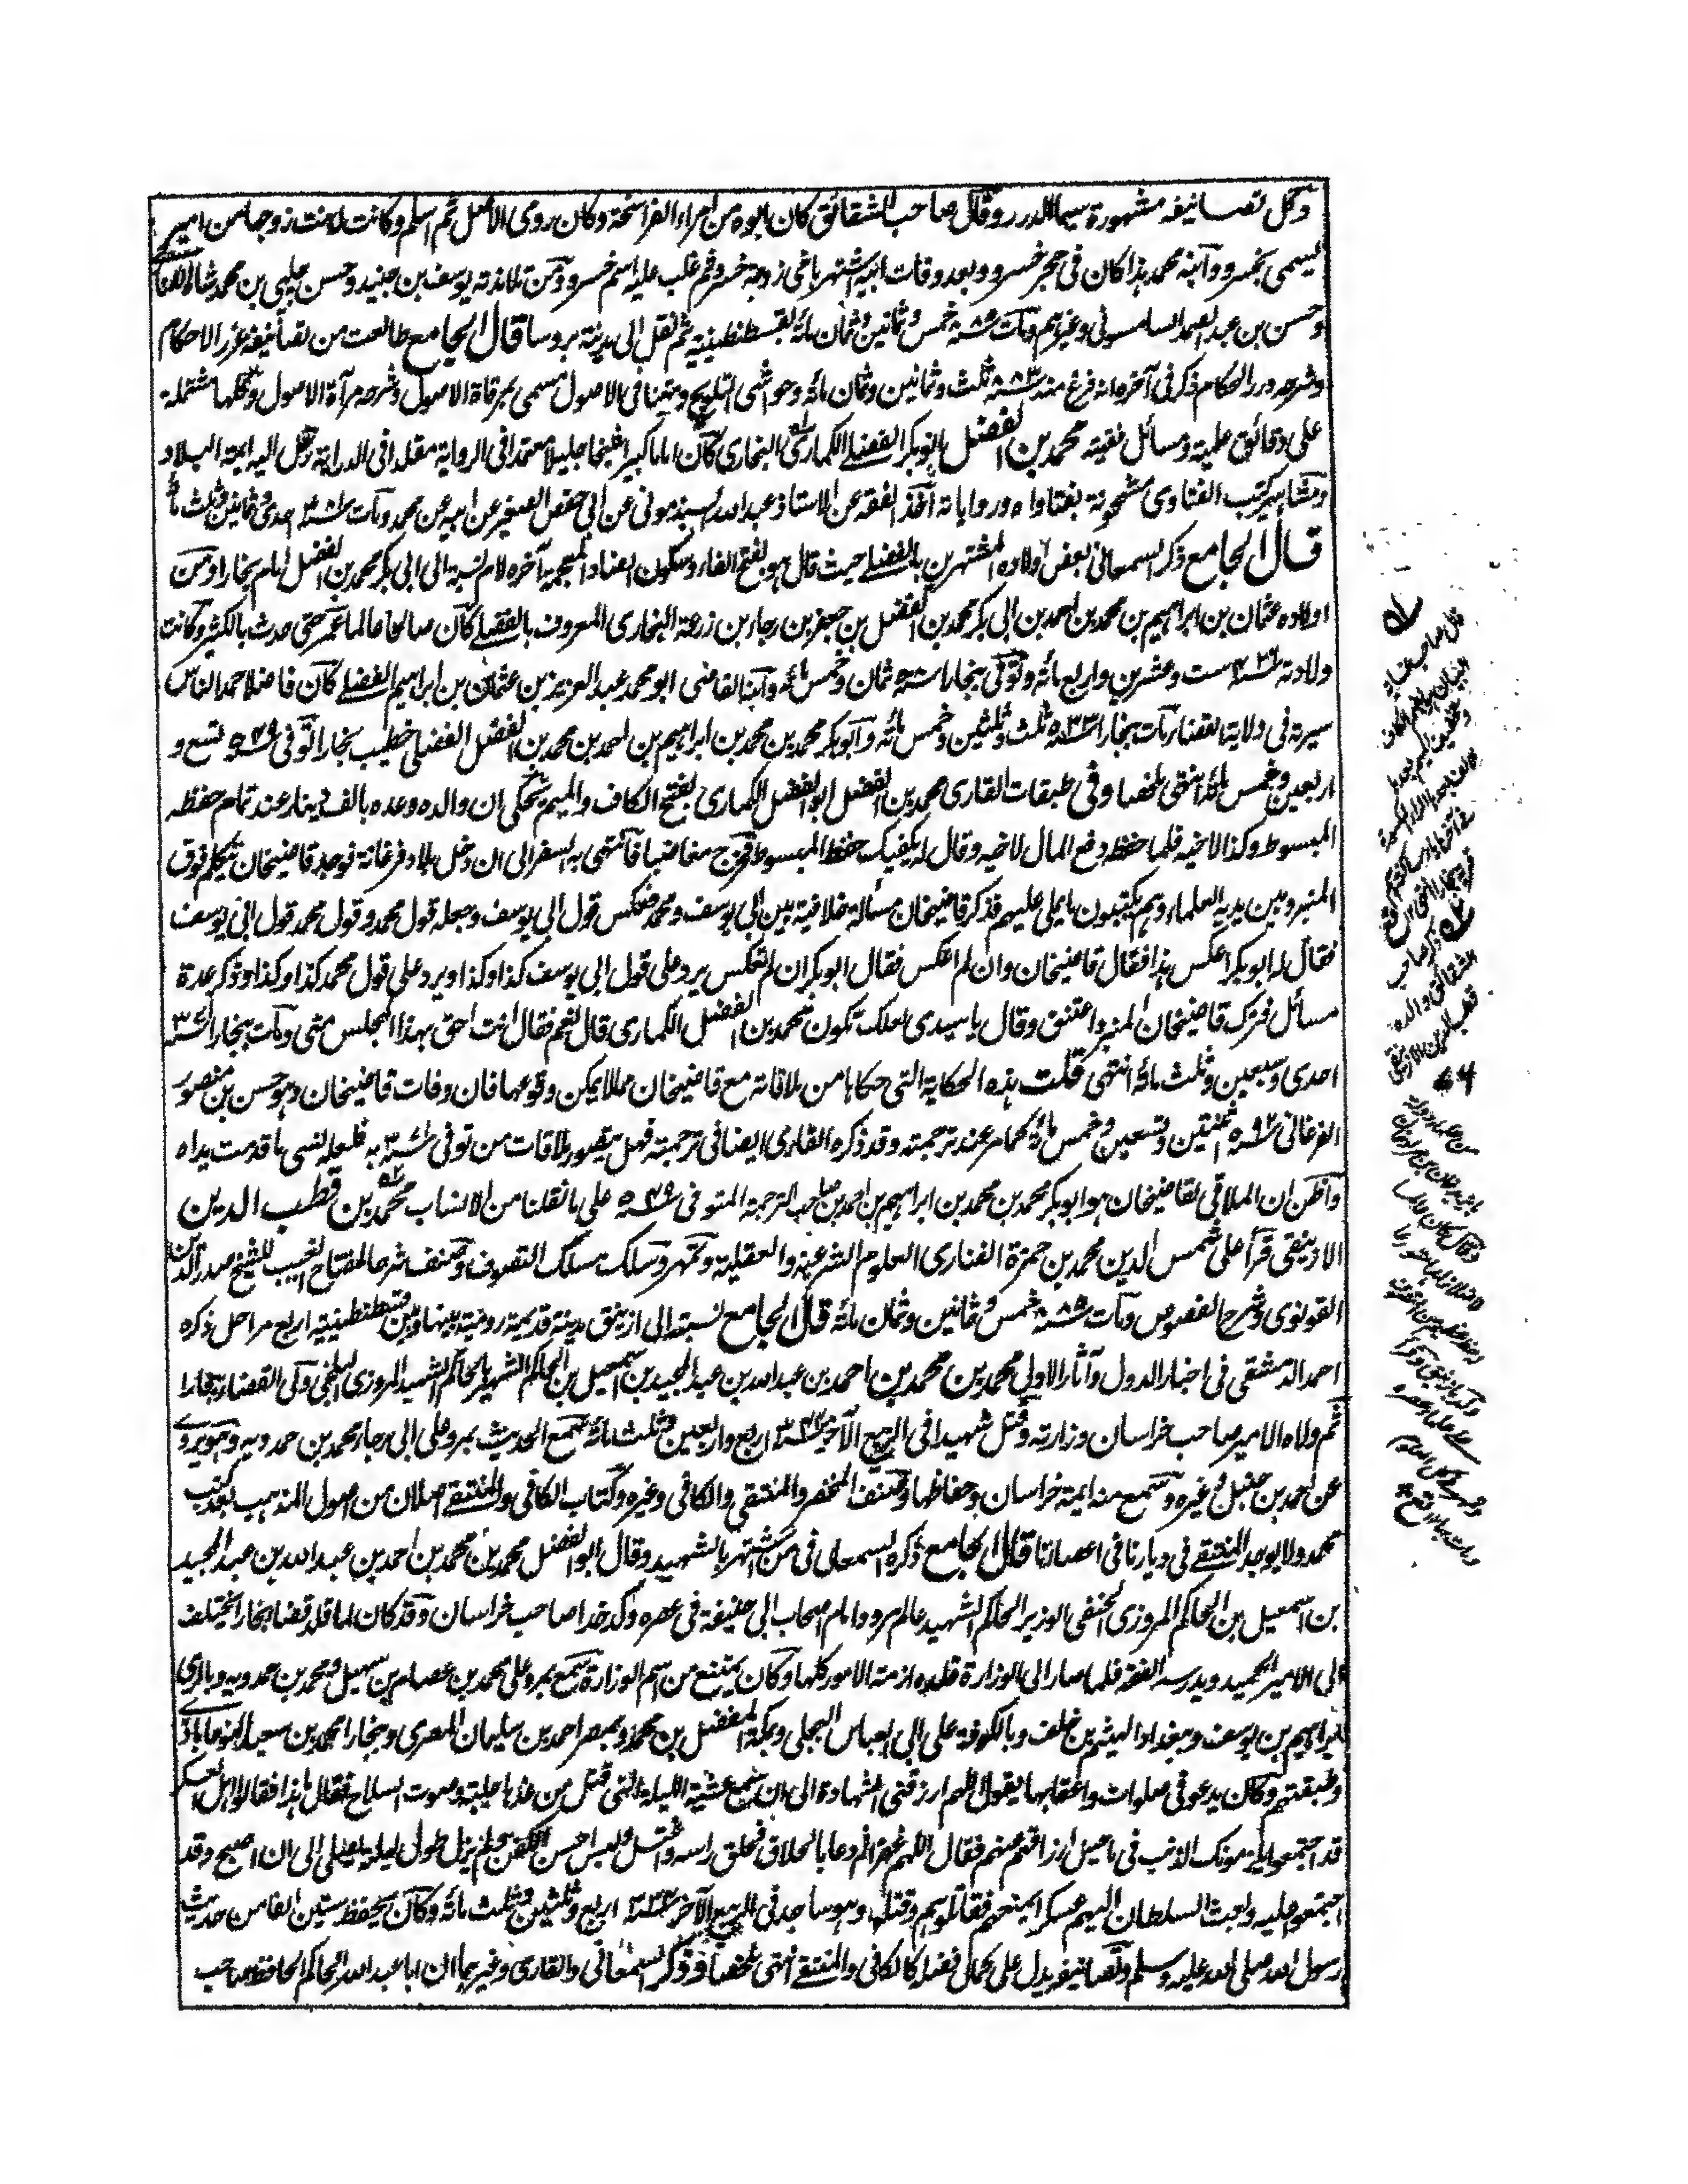 وكل تصانيفه مشهورة سيما الدرر وقال صاحب الشقائق كان ابوه من امراء الفراسخة وكان رومي الاصل ثم اسلم وكانت له بنت زوجها من امير
يسمى بخسرو وابنه محمد هذا كان في حجر خسرو وبعد وفات ابيه اشتهر باخي زوجة خسرو ثم غلب عليه اسم خسرو ومن تلامذته يوسف بن جنيد وحسن چلپي بن محمد شاه الفناري
وحسن بن عبد الصمد السامسوني وغيرهم ومات سنة ٨٨٥ خمس وثمانين وثمان مائة بقسطنطينية ثم نقل الى مدينة بروسا قال الجامع طالعت من تصانيفه غرر الاحكام
وشرحه درر الحكام ذكر في آخره انه فرغ منه سنة ٨٨٣ ثلث وثمانين وثمان مائة وحواشي التلويح ومتنا في الاصول تسمى بمرقاة الاصول وشرحه مرآة الاصول وكلها مشتملة
على دقائق علمية ومسائل فقهية محمد بن الفضل ابو بكر الفضلي الكماري البخاري كان اماما كبيرا شيخا جليلا معتمدا في الرواية مقلدا في الدراية رحل اليه ائمة البلاد
ومشاهير كتب الفتاوى مشحونة بفتاواه ورواياته اخذ الفقه عن الاستاذ عبد الله السبذموني عن ابي حفص الصغير عن ابيه عن محمد ومات سنة ٣٨١ احدى وثمانين وثلث مائة
قال الجامع ذكر السمعاني بعض اولاده المشتهرين بالفضلي حيث قال هو بفتح الفاء وسكون الضاد المعجمة آخره لام نسبة الى ابي بكر محمد بن الفضل امام بخارا ومن
اولاده عثمان بن ابراهيم بن محمد بن احمد بن ابي بكر محمد بن الفضل بن جعفر بن رجاء بن زرعة البخاري المعروف بالفضلي كان صالحا عالما عمر حتى حدث بالكثير وكانت
ولادته سنة ٤٢٦ ست وعشرين واربع مائة وتوفي ببخارا سنة ٥٠٨ ثمان وخمس مائة وابنه القاضي ابو محمد عبد العزيز بن عثمان بن ابراهيم الفضلي كان فاضلا احمد الناس
سيرة في ولاية القضاء مات ببخارا سنة ٥٣٣ ثلث وثلثين وخمس مائة وابو بكر محمد بن محمد بن ابراهيم بن احمد بن محمد بن الفضل الفضلي خطيب بخارا توفي سنة ٥٤٩ تسع و
اربعين وخمس مائة انتهى ملخصا وفي طبقات القاري محمد بن الفضل ابو الفضل الكماري بفتح الكاف والميم يحكى ان والده وعده بالف دينار عند تمام حفظه
المبسوط وكذا لاخيه فلما حفظه دفع المال لاخيه وقال له يكفيك حفظ المبسوط فخرج مغاضبا فانتهى به السفر الى ان دخل بلاد فرغانة فوجد قاضيخان يتكلم فوق
المنبر وبين يديه العلماء وهم يكتبون ما يملي عليهم فذكر قاضيخان مسألة خلافية بين ابي يوسف ومحمد فعكس قول ابي يوسف وجعله قول محمد وقول محمد قول ابي يوسف
فقال له ابو بكر اعكس هذا فقال قاضيخان وان لم اعكس فقال ابو بكر ان لم تعكس يرد على قول ابي يوسف كذا وكذا ويرد على قول محمد كذا وكذا وذكر عدة
مسائل فترك قاضيخان المنبر واعتنق وقال يا سيدي لعلك تكون محمد بن الفضل الكماري قال نعم فقال انت احق بهذا المجلس مني ومات ببخارا سنة ٣٧١
احدى وسبعين وثلث مائة انتهى قلت هذه الحكاية التي حكاها من ملاقاته مع قاضيخان مما لا يمكن وقوعها فان وفات قاضيخان وهو حسن بن منصور
الفرغاني سنة ٥٩٢ ثنتين وتسعين وخمس مائة كما مر عند ترجمته وقد ذكره القاري ايضا في ترجمته فهل يتصور ملاقات من توفي سنة ٣٧١ به فلعله نسي ما قدمت يداه
واظن ان الملاقي لقاضيخان هو ابو بكر محمد بن محمد بن ابراهيم بن احمد بن صاحب الترجمة المتوفى سنة ٥٤٩ على ما نقلنا من الانساب محمد بن قطب الدين
الازنيقي قرأ على شمس الدين محمد بن حمزة الفناري العلوم الشرعية والعقلية وتمهر وسلك مسلك التصوف وصنف شرحا لمفتاح الغيب للشيخ صدر الدين
القونوي وشرح الفصوص ومات سنة ٨٨٥ خمس وثمانين وثمان مائة قال الجامع نسبته الى ازنيق مدينة قديمة رومية بينها وبين قسطنطينية اربع مراحل ذكره
احمد الدمشقي في اخبار الدول وآثار الاول محمد بن محمد بن احمد بن عبد الله بن عبد المجيد بن اسمعيل بن الحاكم الشهير بالحاكم الشهيد المروزي البلخي ولي القضاء ببخارا
ثم ولاه الامير صاحب خراسان وزارته وقتل شهيدا في الربيع الآخر سنة ٣٤٤ اربع واربعين وثلث مائة سمع الحديث بمرو على ابي رجاء محمد بن حمدويه وهو يروي
عن احمد بن حنبل وغيره وسمع منه ائمة خراسان وحفاظها وصنف المختصر والمنتقى والكافي وغيره وكتاب الكافي والمنتقى اصلان من اصول المذهب بعد كتب
محمد ولا يوجد المنتقى في ديارنا في اعصارنا قال الجامع ذكره السمعاني في من اشتهر بالشهيد وقال ابو الفضل محمد بن محمد بن احمد بن عبد الله بن عبد المجيد
بن اسمعيل بن الحاكم المروزي الحنفي الوزير الحاكم الشهيد عالم مرو وامام اصحاب ابي حنيفة في عصره وكدخدا صاحب خراسان وقد كان لما قلد قضاء بخارا يختلف
الى الامير الحميد ويدرسه الفقه فلما صار الى الوزارة قلده ازمة الامور كلها وكان يمتنع من اسم الوزارة سمع بمرو على محمد بن عصام بن سهيل ومحمد بن حمدويه وبالري
ابراهيم بن يوسف وببغداد الهيثم بن خلف وبالكوفة علي ابي العباس البجلي وبمكة المفضل بن محمد وبمصر احمد بن سليمان المصري وببخارا محمد بن سعيد
وطبقتهم وكان يدعو في صلواته واعقابها يقول اللهم ارزقني الشهادة الى ان سمع عشية الليلة التي قتل من غدها جلبة وصوت السلاح فقال ما هذا فقالوا اهل العسكر
قد اجتمعوا يلزمونك الذنب في تاخير ارزاقهم عنهم فقال اللهم غفرا ثم دعا بالحلاق فحلق راسه واغتسل ولبس احسن الكفن ولم يزل طول ليله يصلي الى ان اصبح وقد
اجتمعوا عليه وبعث السلطان اليهم عسكرا يمنعهم فقاتلوهم وقتلوه وهو ساجد في الربيع الآخر سنة ٣٣٤ اربع وثلثين وثلث مائة وكان يحفظ ستين الفا من حديث
رسول الله صلى الله عليه وسلم وتصانيفه يدل على كمال فضله كالكافي والمنتقى انتهى ملخصا وذكر السمعاني والقاري وغيرهما ان ابا عبد الله الحاكم الحافظ صاحب